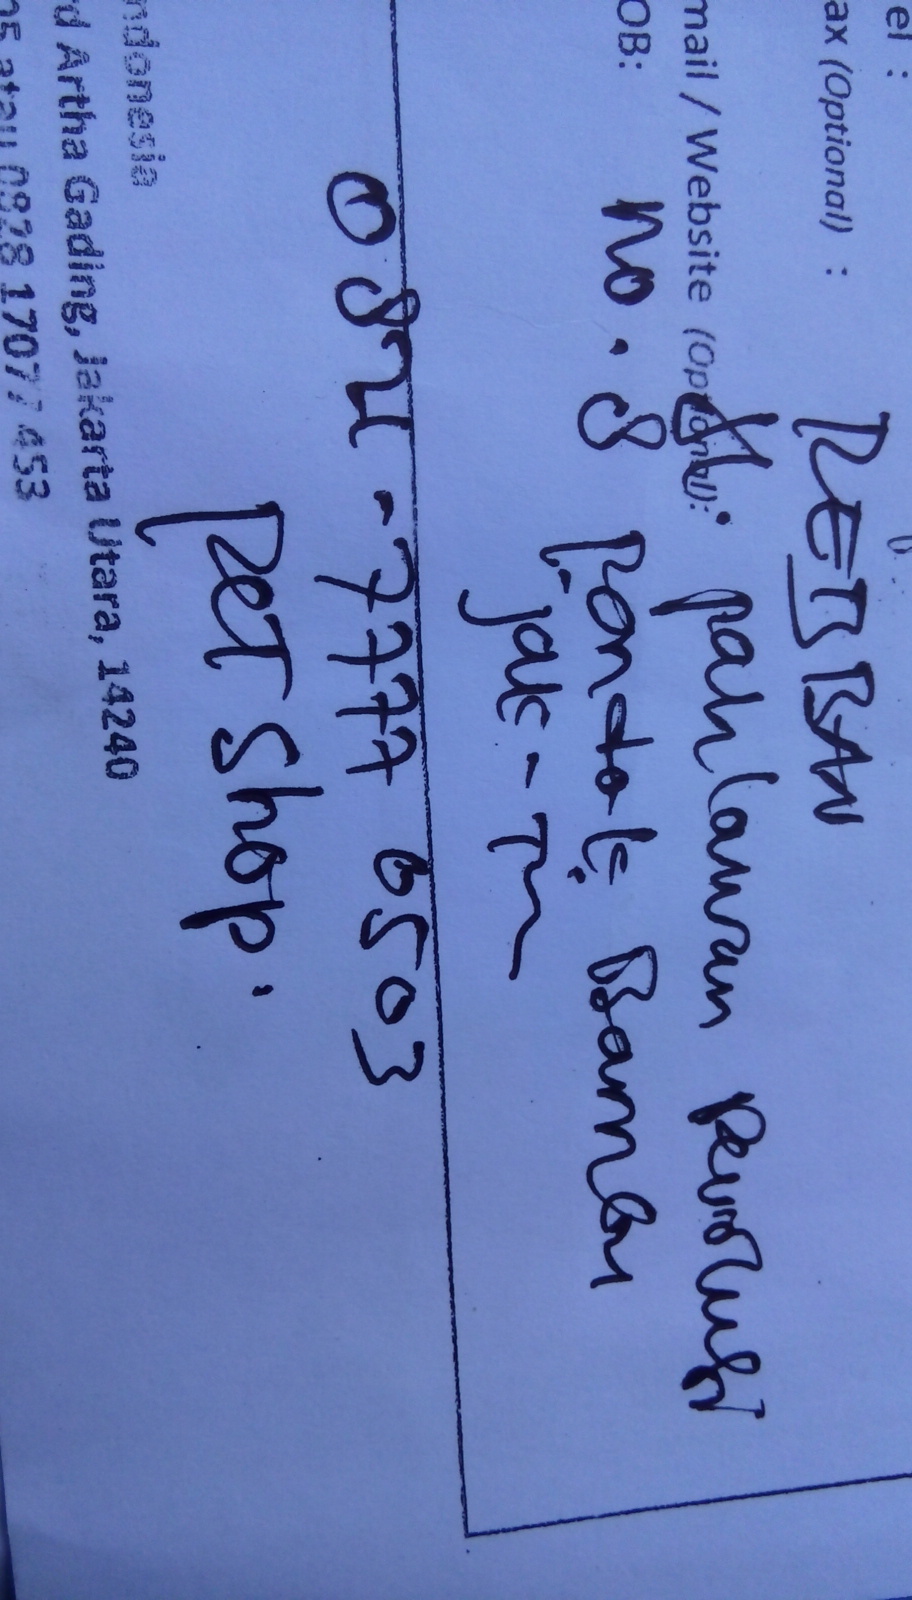 el :
ax (Optional) :
REBBAN
mail / Website (Optional):
Jl. pahlawan Revolusi
OB:
no. 8 Pondok Bambu
Jak - Tim
0821 - 7777 6503
Pet Shop.
ndonesia
d Artha Gading, Jakarta Utara, 14240
05 atau 0828 1707 7453